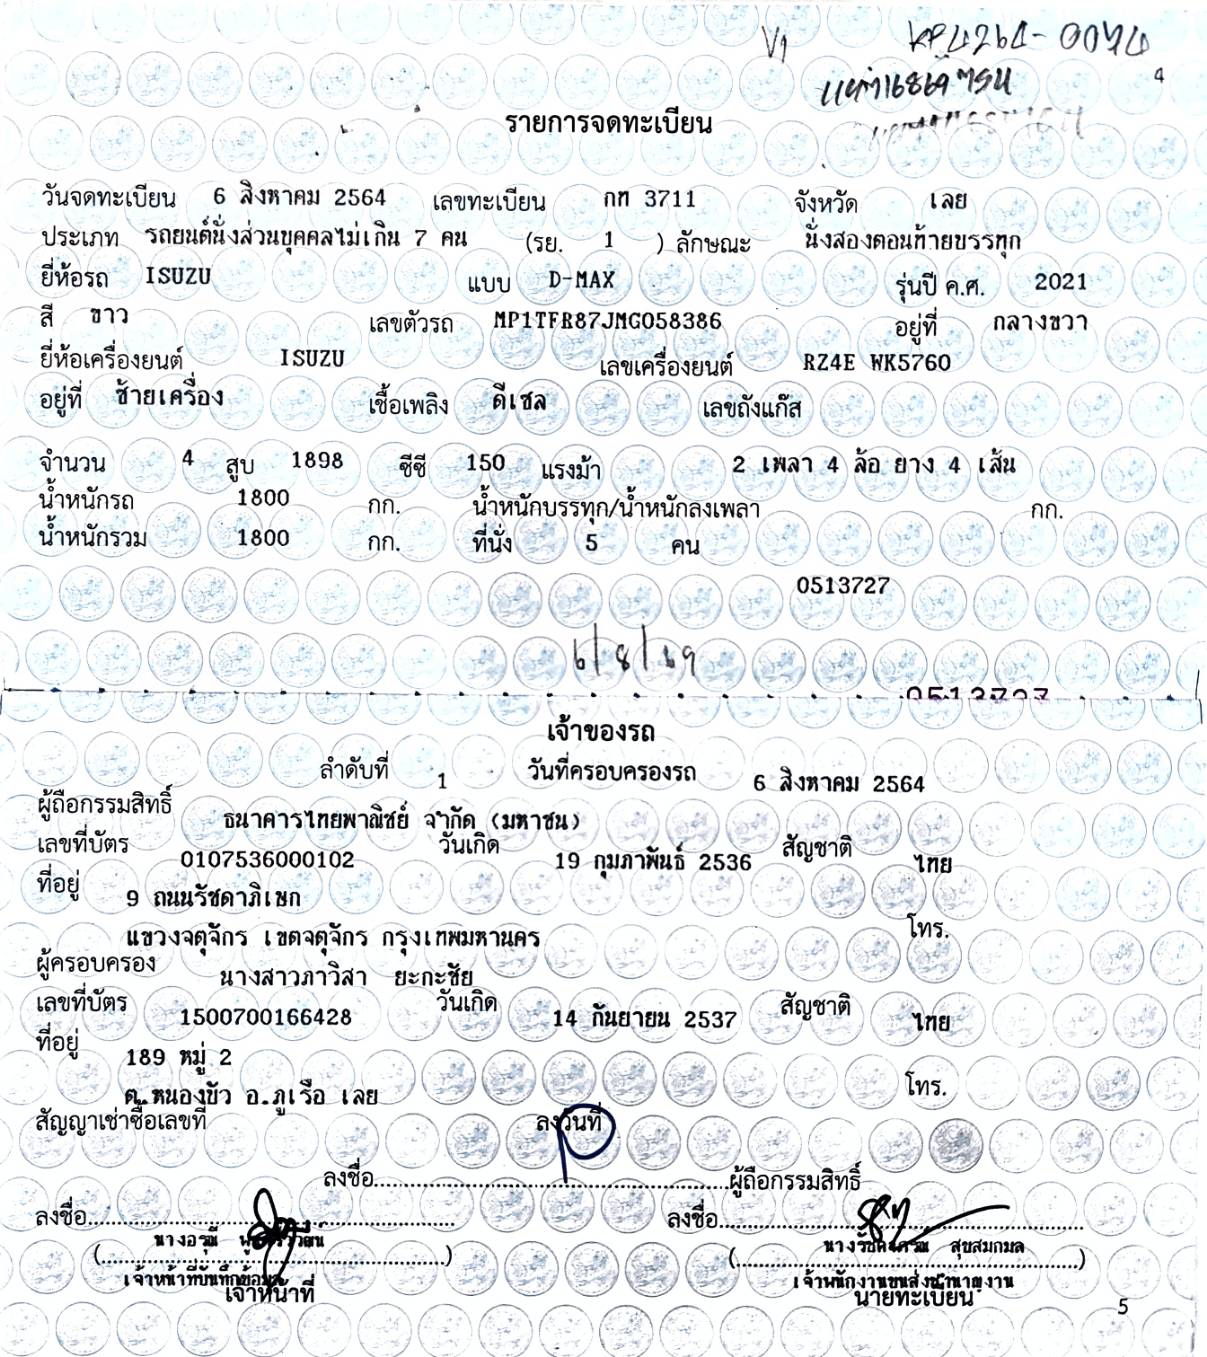 V1 KP4264-0074
4
รายการจดทะเบียน
วันจดทะเบียน 6 สิงหาคม 2564 เลขทะเบียน กท 3711 จังหวัด เลย
ประเภท รถยนต์นั่งส่วนบุคคลไม่เกิน 7 คน (รย. 1 ) ลักษณะ นั่งสองตอนท้ายบรรทุก
ยี่ห้อรถ ISUZU แบบ D-MAX รุ่นปี ค.ศ. 2021
สี ขาว เลขตัวรถ MP1TFR87JMG058386 อยู่ที่ กลางขวา
ยี่ห้อเครื่องยนต์ ISUZU เลขเครื่องยนต์ RZ4E WK5760
อยู่ที่ ซ้ายเครื่อง เชื้อเพลิง ดีเซล เลขถังแก๊ส
จำนวน 4 สูบ 1898 ซีซี 150 แรงม้า 2 เพลา 4 ล้อ ยาง 4 เส้น
น้ำหนักรถ 1800 กก. น้ำหนักบรรทุก/น้ำหนักลงเพลา กก.
น้ำหนักรวม 1800 กก. ที่นั่ง 5 คน
0513727
6/8/69
0513727
เจ้าของรถ
ลำดับที่ 1 วันที่ครอบครองรถ 6 สิงหาคม 2564
ผู้ถือกรรมสิทธิ์ ธนาคารไทยพาณิชย์ จำกัด (มหาชน)
เลขที่บัตร 0107536000102 วันเกิด 19 กุมภาพันธ์ 2536 สัญชาติ ไทย
ที่อยู่ 9 ถนนรัชดาภิเษก
แขวงจตุจักร เขตจตุจักร กรุงเทพมหานคร โทร.
ผู้ครอบครอง นางสาวภาวิสา ยะกะชัย
เลขที่บัตร 1500700166428 วันเกิด 14 กันยายน 2537 สัญชาติ ไทย
ที่อยู่ 189 หมู่ 2
ต.หนองบัว อ.ภูเรือ เลย โทร.
สัญญาเช่าซื้อเลขที่ ลงวันที่
ลงชื่อ ผู้ถือกรรมสิทธิ์
ลงชื่อ ลงชื่อ
นางอรุณี สุขสมกมล
เจ้าหน้าที่บันทึกข้อมูล เจ้าพนักงานขนส่งชำนาญงาน
เจ้าหน้าที่ นายทะเบียน
5